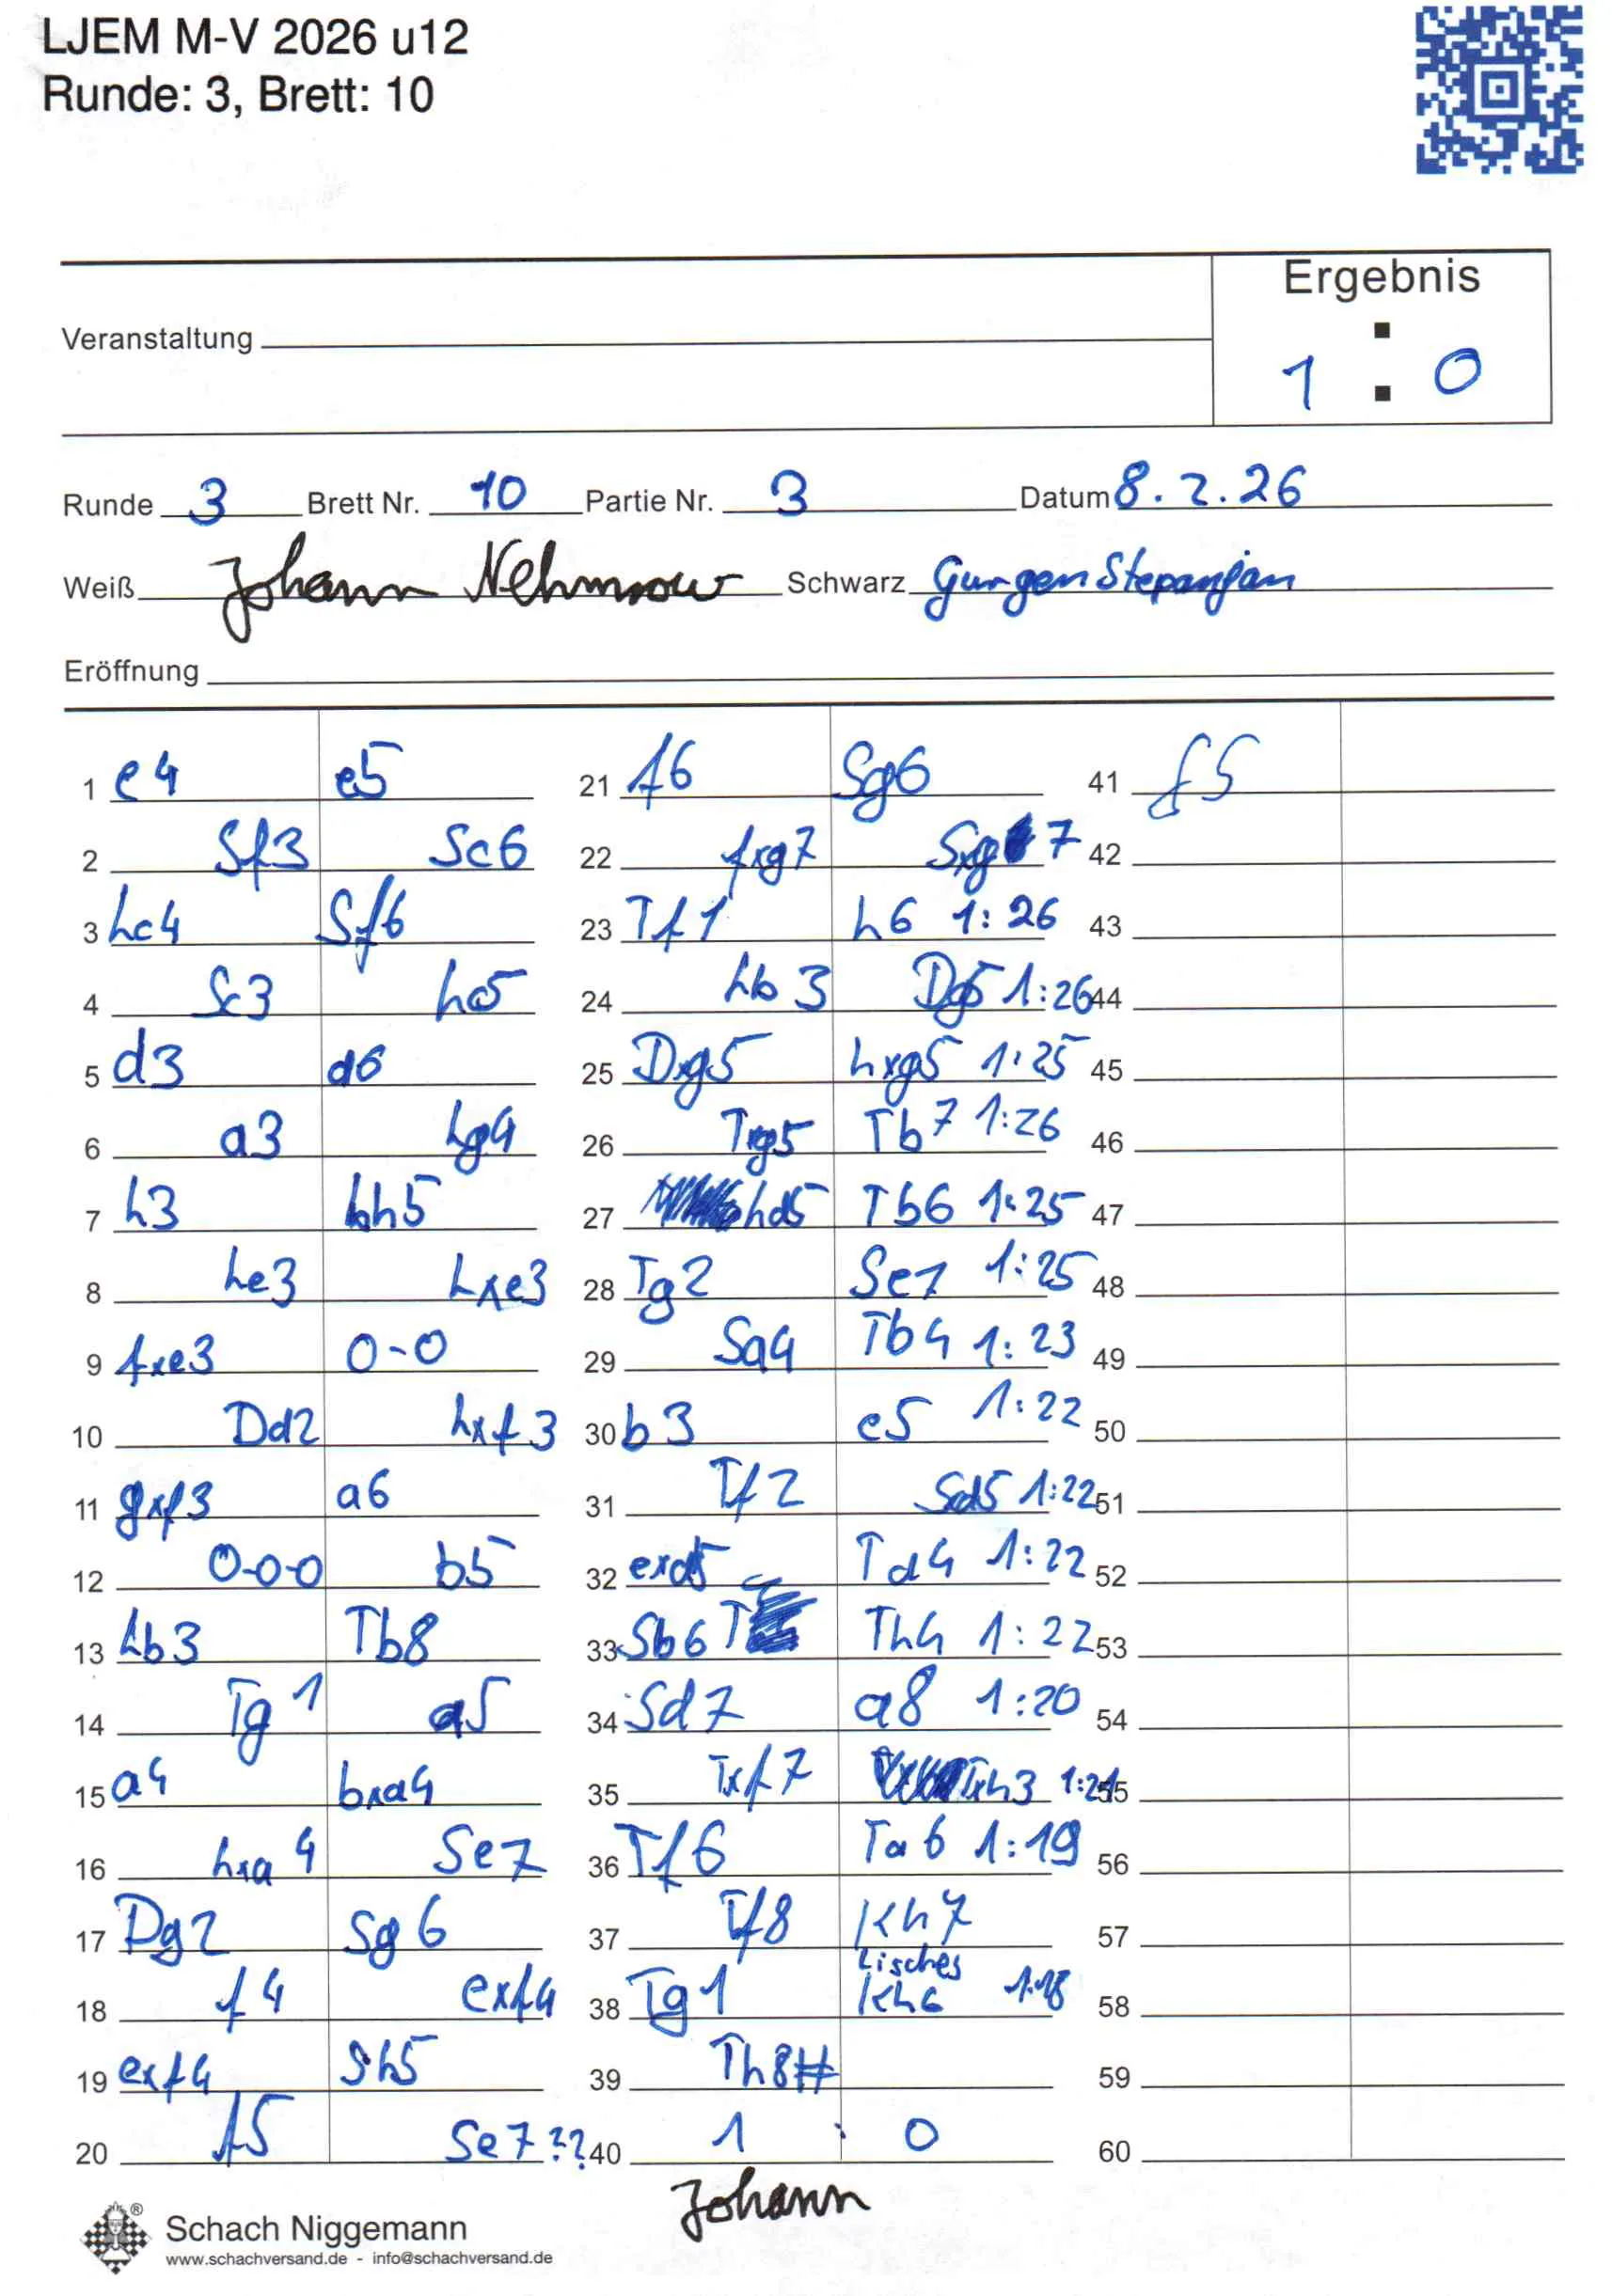 LJEM M-V 2026 u12
Runde: 3, Brett: 10
Ergebnis
Veranstaltung
1 : 0
Runde 3 Brett Nr. 10 Partie Nr. 3 Datum 8.2.26
Weiß Johann Nehmzow Schwarz Gurgen Stepanjan
Eröffnung
1 e4 e5
2 Sf3 Sc6
3 Lc4 Sf6
4 Sc3 Lc5
5 d3 d6
6 a3 Lg4
7 h3 Lh5
8 Le3 Lxe3
9 fxe3 0-0
10 Dd2 Lxf3
11 gxf3 a6
12 0-0-0 b5
13 Lb3 Tb8
14 Tg1 a5
15 a4 bxa4
16 Lxa4 Se7
17 Dg2 Sg6
18 f4 exf4
19 exf4 Sh5
20 f5 Se7??
21 f6 Sg6
22 fxg7 Sxg7
23 Tf1 h6 1:26
24 Lb3 Dg5 1:26
25 Dxg5 hxg5 1:25
26 Txg5 Tb7 1:26
27 Ld5 Tb6 1:25
28 Tg2 Se7 1:25
29 Sa4 Tb4 1:23
30 b3 c5 1:22
31 Tf2 Sd5 1:22
32 exd5 Td4 1:22
33 Sb6 Th4 1:22
34 Sd7 a8 1:20
35 Txf7 Txh3 1:21
36 Tf6 Ta6 1:19
37 Tf8 Kh7
Lisches
38 Tg1 Kh6 1:18
39 Th8#
40 1 : 0
41 f5
42
43
44
45
46
47
48
49
50
51
52
53
54
55
56
57
58
59
60
Johann
Schach Niggemann
www.schachversand.de - info@schachversand.de